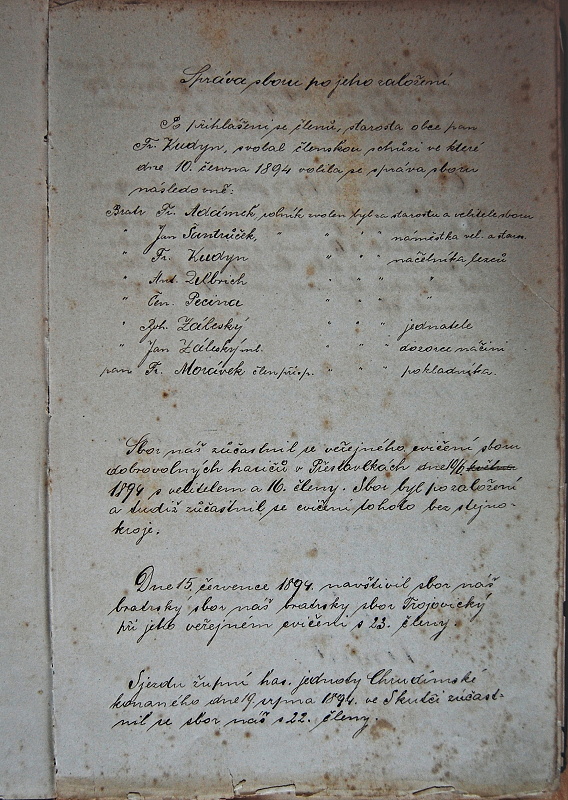 Správa sboru po jeho založení.
Po přihlášení se členů, starosta obce pan
Fr. Kudyn, svolal členskou schůzi ve které
dne 10. června 1894 volila se správa sboru
následovně:
Bratr Fr. Adámek, rolník zvolen byl za starostu a velitele sboru
" Jan Santrůček, " " " náměstka vel. a staros.
" Fr. Kudyn " " " načelníka lezců
" Ant. Dlbrich " " " "
" Čen. Pecina " " " "
" Boh. Záleský " " " jednatele
" Jan Záleský ml. " " " dozorce náčiní
pan Fr. Morávek člen přisp. " " " pokladníka.
Sbor náš zúčastnil se veřejného cvičení sboru
dobrovolných hasičů v Přestavlkách dne 10/6 května
1894 s velitelem a 16. členy. Sbor byl po založení
a tudíž zúčastnil se cvičení tohoto bez stejno-
kroje.
Dne 15. července 1894. navštívil sbor náš
bratrský sbor náš bratrsky sbor Trojovický
při jeho veřejném cvičení s 23. členy.
Sjezdu župní has. jednoty Chrudimské
konaného dne 19. srpna 1894. ve Skutči zúčast-
nil se sbor náš s 22. členy.